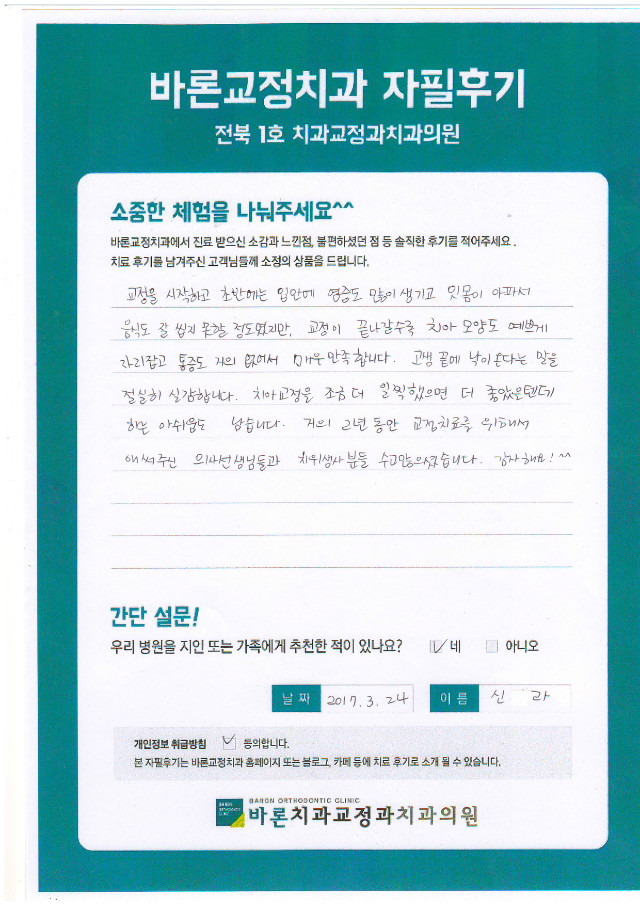 바론교정치과 자필후기
전북 1호 치과교정과치과의원
소중한 체험을 나눠주세요^^
바론교정치과에서 진료 받으신 소감과 느낀점, 불편하셨던 점 등 솔직한 후기를 적어주세요.
치료 후기를 남겨주신 고객님들께 소정의 상품을 드립니다.
교정을 시작하고 초반에는 입안에 염증도 많이 생기고 잇몸이 아파서
음식도 잘 씹지 못할 정도였지만, 교정이 끝나갈수록 치아 모양도 예쁘게
자리잡고 통증도 거의 없어서 매우 만족합니다. 고생 끝에 낙이온다는 말을
절실히 실감합니다. 치아교정을 조금 더 일찍했으면 더 좋았을텐데
하는 아쉬움도 남습니다. 거의 2년 동안 교정치료를 위해서
애써주신 의사선생님들과 치위생사분들 수고많으셨습니다. 감사해요! ^^
간단 설문!
우리 병원을 지인 또는 가족에게 추천한 적이 있나요? 네 아니오
날 짜 2017. 3. 24 이 름 신 라
개인정보 취급방침 동의합니다.
본 자필후기는 바론교정치과 홈페이지 또는 블로그, 카페 등에 치료 후기로 소개 될 수 있습니다.
BARON ORTHODONTIC CLINIC
바론치과교정과치과의원